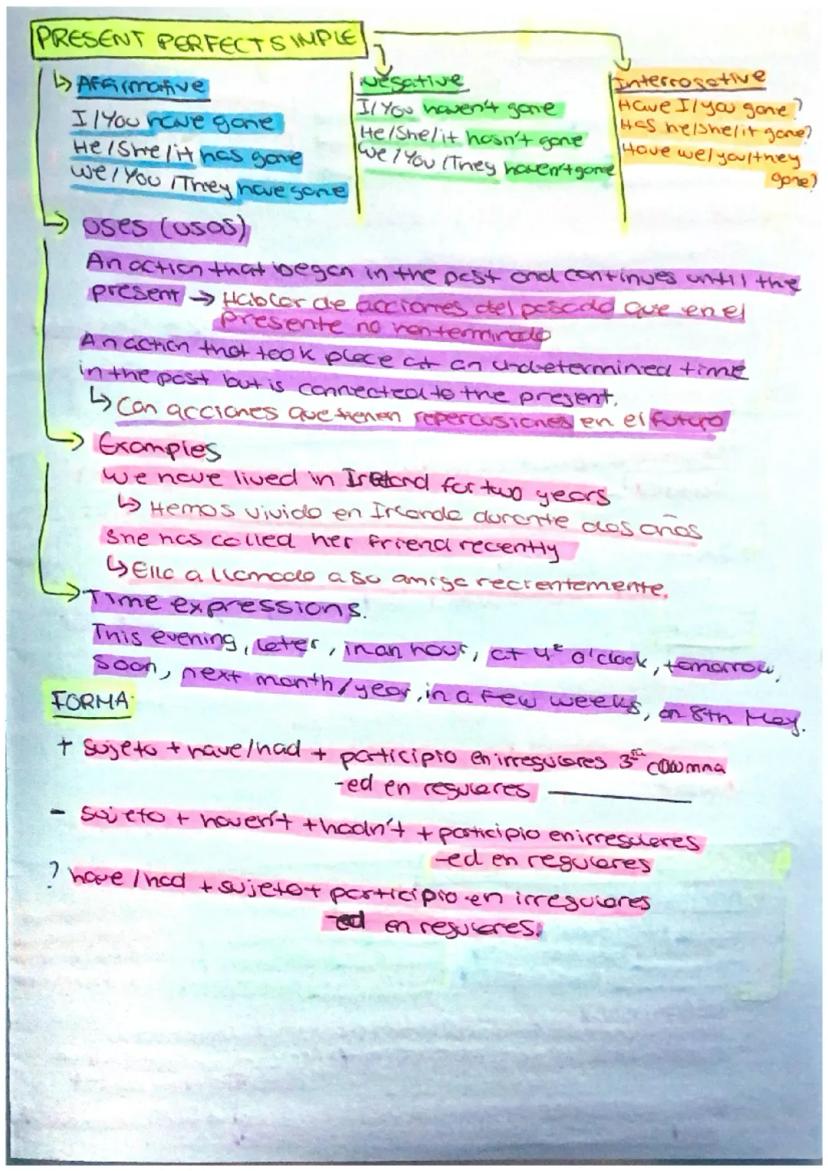 PRESENT PERFECT SIMPLE
Affirmative
I/You have gone
He/She/it has gone
We/You/They have gone
Negative
I/You haven't gone
He/She/it hasn't gone
We/You/They haven't gone
Interrogative
Have I/you gone?
Has he/she/it gone?
Have we/you/they
gone?
USES (USOS)
An action that began in the past and continues until the
present → Hablar de acciones del pasado que en el
presente no han terminado
An action that took place at an undetermined time
in the past but is connected to the present.
Con acciones que tienen repercusiones en el futuro
Examples
We have lived in Ireland for two years
Hemos vivido en Irlanda durante dos años
She has called her friend recently
Ella a llamado a su amiga recientemente.
Time expressions.
This evening, later, in an hour, at 4º o'clock, tomorrow,
Soon, next month/year, in a few weeks, on 8th May.
FORMA:
+ sujeto + have/had + participio en irregulares 3ra columna
-ed en regulares
- sujeto + haven't + hadn't + participio en irregulares
-ed en regulares
? have/had + sujeto + participio en irregulares
-ed en regulares.